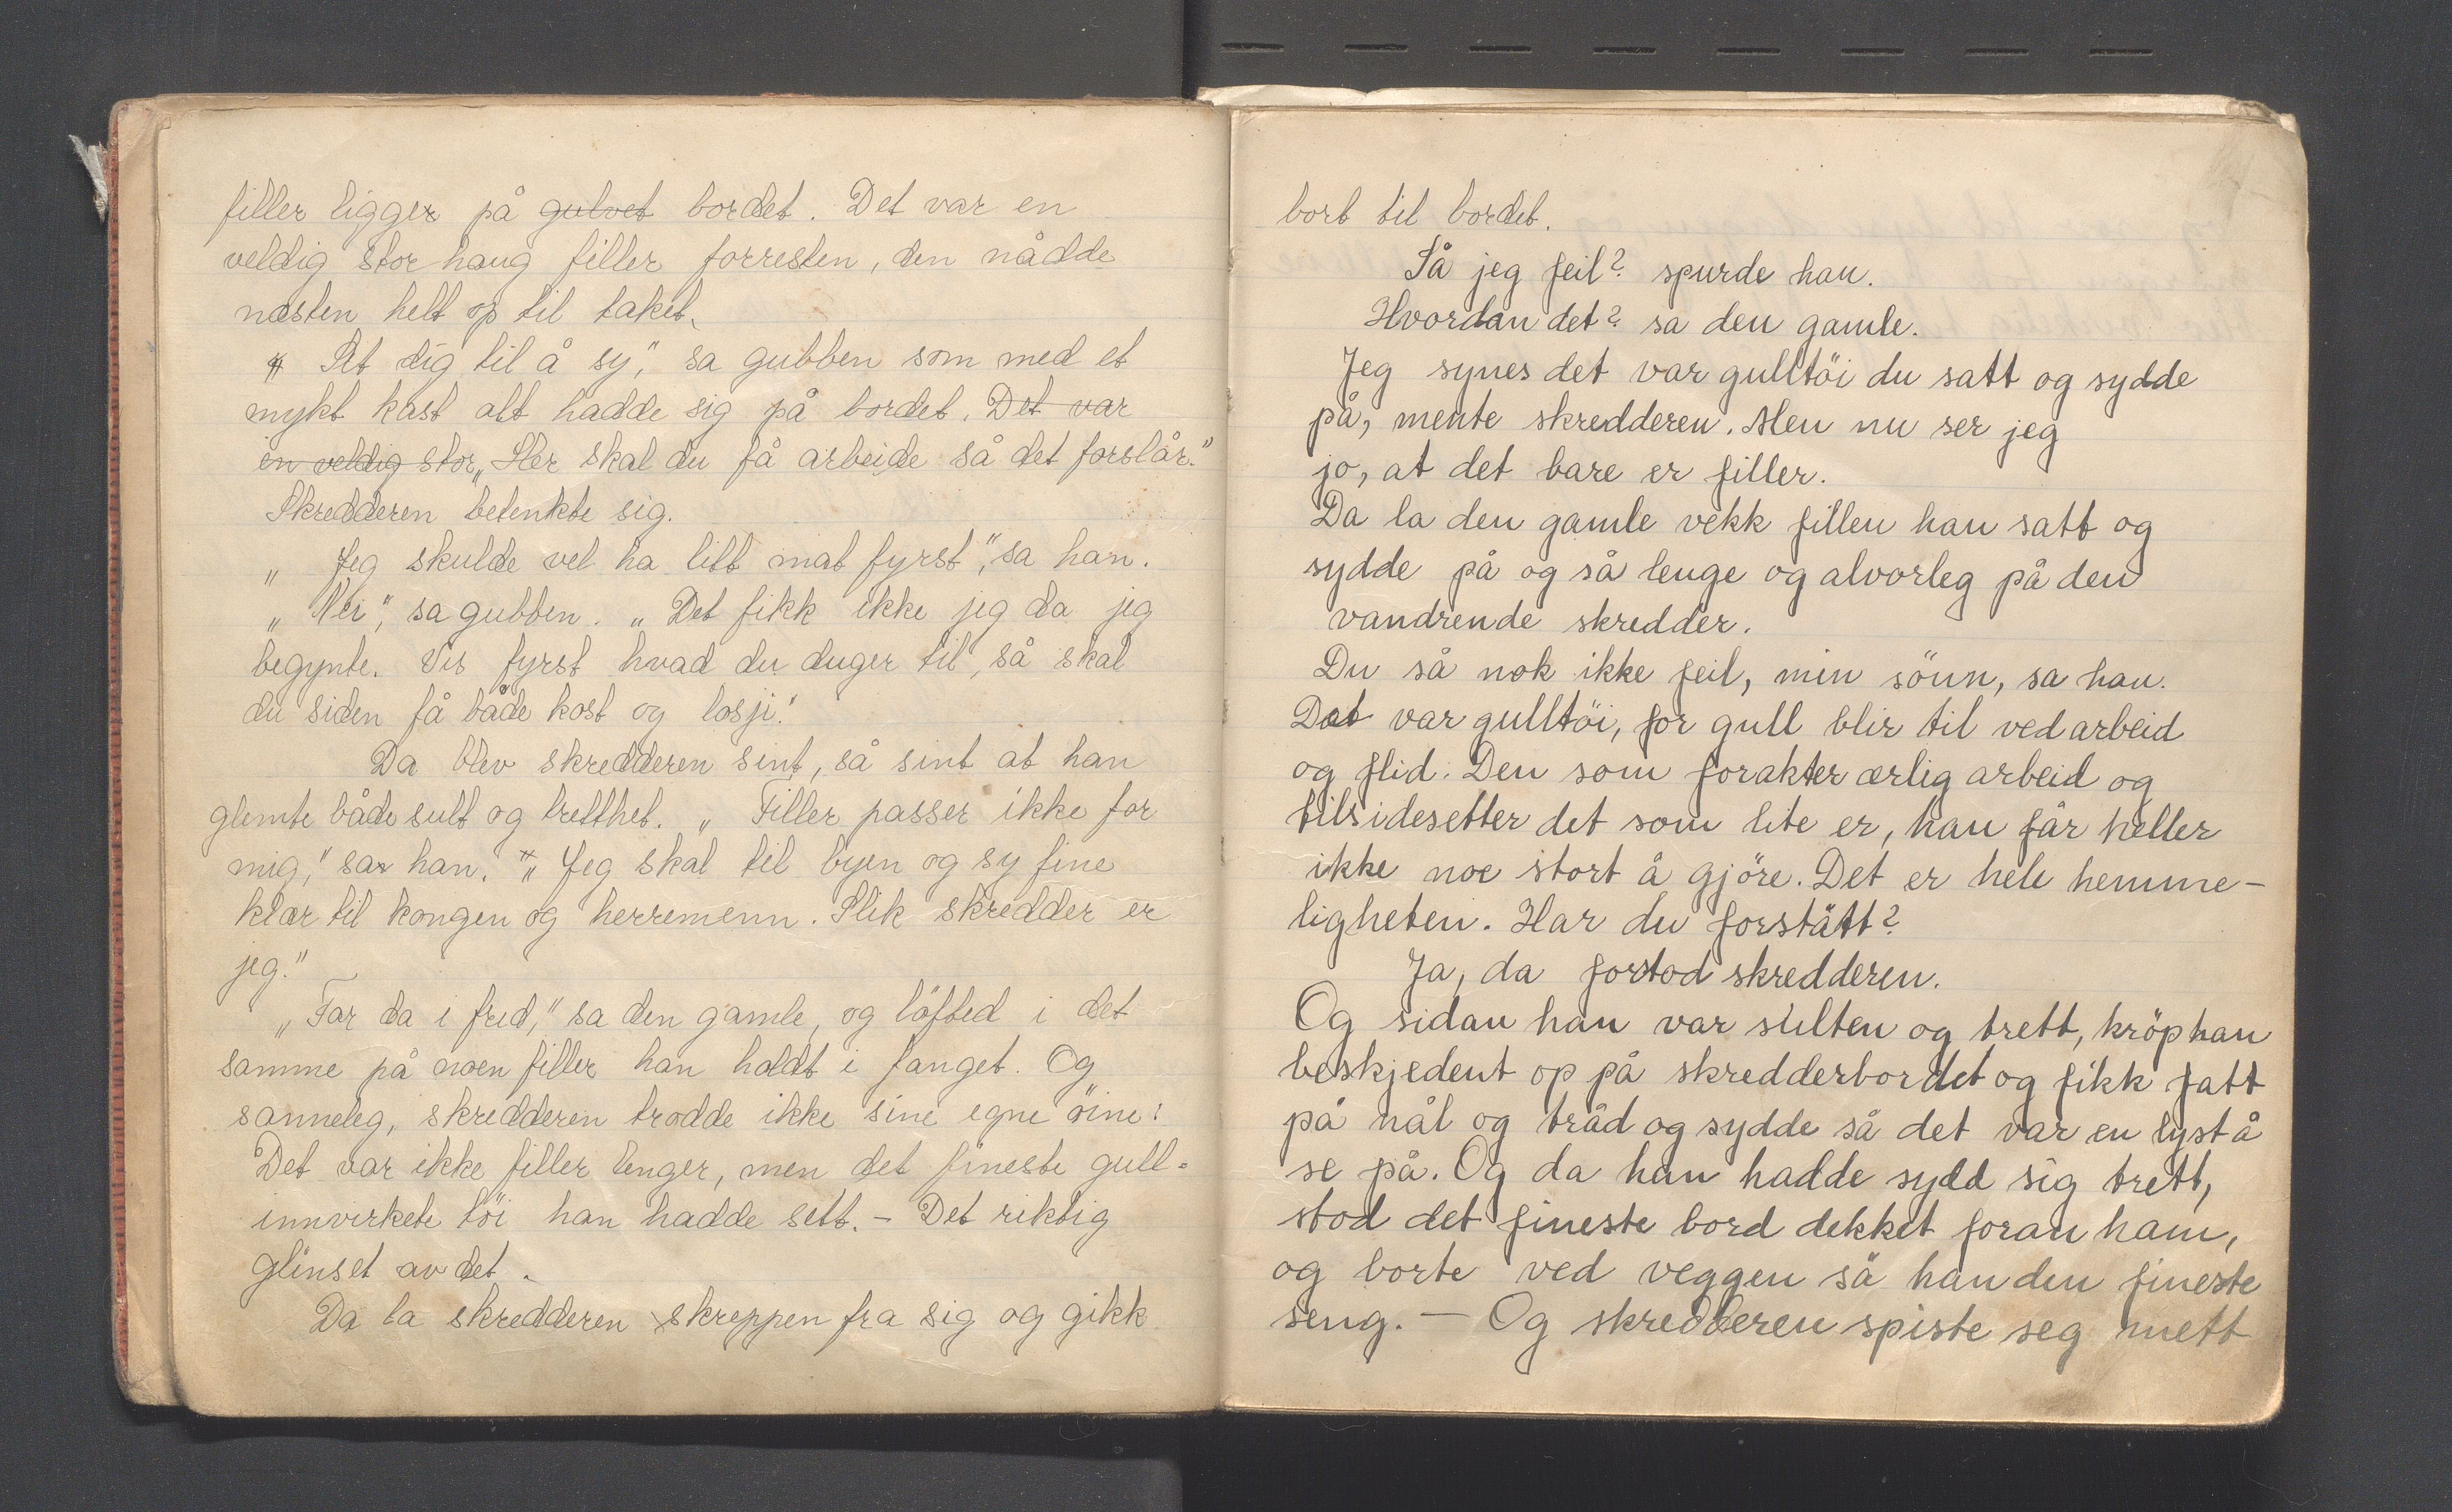 filler ligger på gulvet bordet. Det var en
veldig stor haug filler forresten, den nådde
næsten helt op til taket.
„ Set dig til å sy," sa gubben som med et
mykt kast alt hadde sig på bordet. Det var
en veldig stor „Her skal du få arbeide så det forslår."
Skredderen betenkte sig.
„ Jeg skulde vel ha litt mat fyrst," sa han.
„ Nei," sa gubben. „ Det fikk ikke jeg da jeg
begynte. Vis fyrst hvad du duger til, så skal
du siden få både kost og losji."
Da blev skredderen sint, så sint at han
glemte både sult og tretthet. „ Filler passer ikke for
mig," sa han. „ Jeg skal til byen og sy fine
klær til kongen og herremenn. Slik skredder er
jeg."
„ Far da i fred," sa den gamle, og löfted i det
samme på noen filler han holdt i fanget. Og
sanneleg, skredderen trodde ikke sine egne öine:
Det var ikke filler lenger, men det fineste gull=
innvirkete töi han hadde sett. - Det riktig
glinset av det.
Da la skredderen skreppen fra sig og gikk
bort til bordet.
Så jeg feil? spurde han.
Hvordan det? sa den gamle.
Jeg synes det var gulltöi du satt og sydde
på, mente skredderen. Men nu ser jeg
jo, at det bare er filler.
Da la den gamle vekk fillen han satt og
sydde på og så lenge og alvorleg på den
vandrende skredder.
Du så nok ikke feil, min sönn, sa han.
Det var gulltöi, for gull blir til ved arbeid
og flid. Den som forakter ærlig arbeid og
tilsidesetter det som lite er, han får heller
ikke noe stort å gjöre. Det er hele hemme-
ligheten. Har du forstått?
Ja, da forstod skredderen.
Og sidan han var sulten og trett, kröp han
beskjedent op på skredderbordet og fikk fatt
på nål og tråd og sydde så det var en lyst å
se på. Og da han hadde sydd sig trett,
stod det fineste bord dekket foran ham,
og borte ved veggen så han den fineste
seng. - Og skredderen spiste seg mett